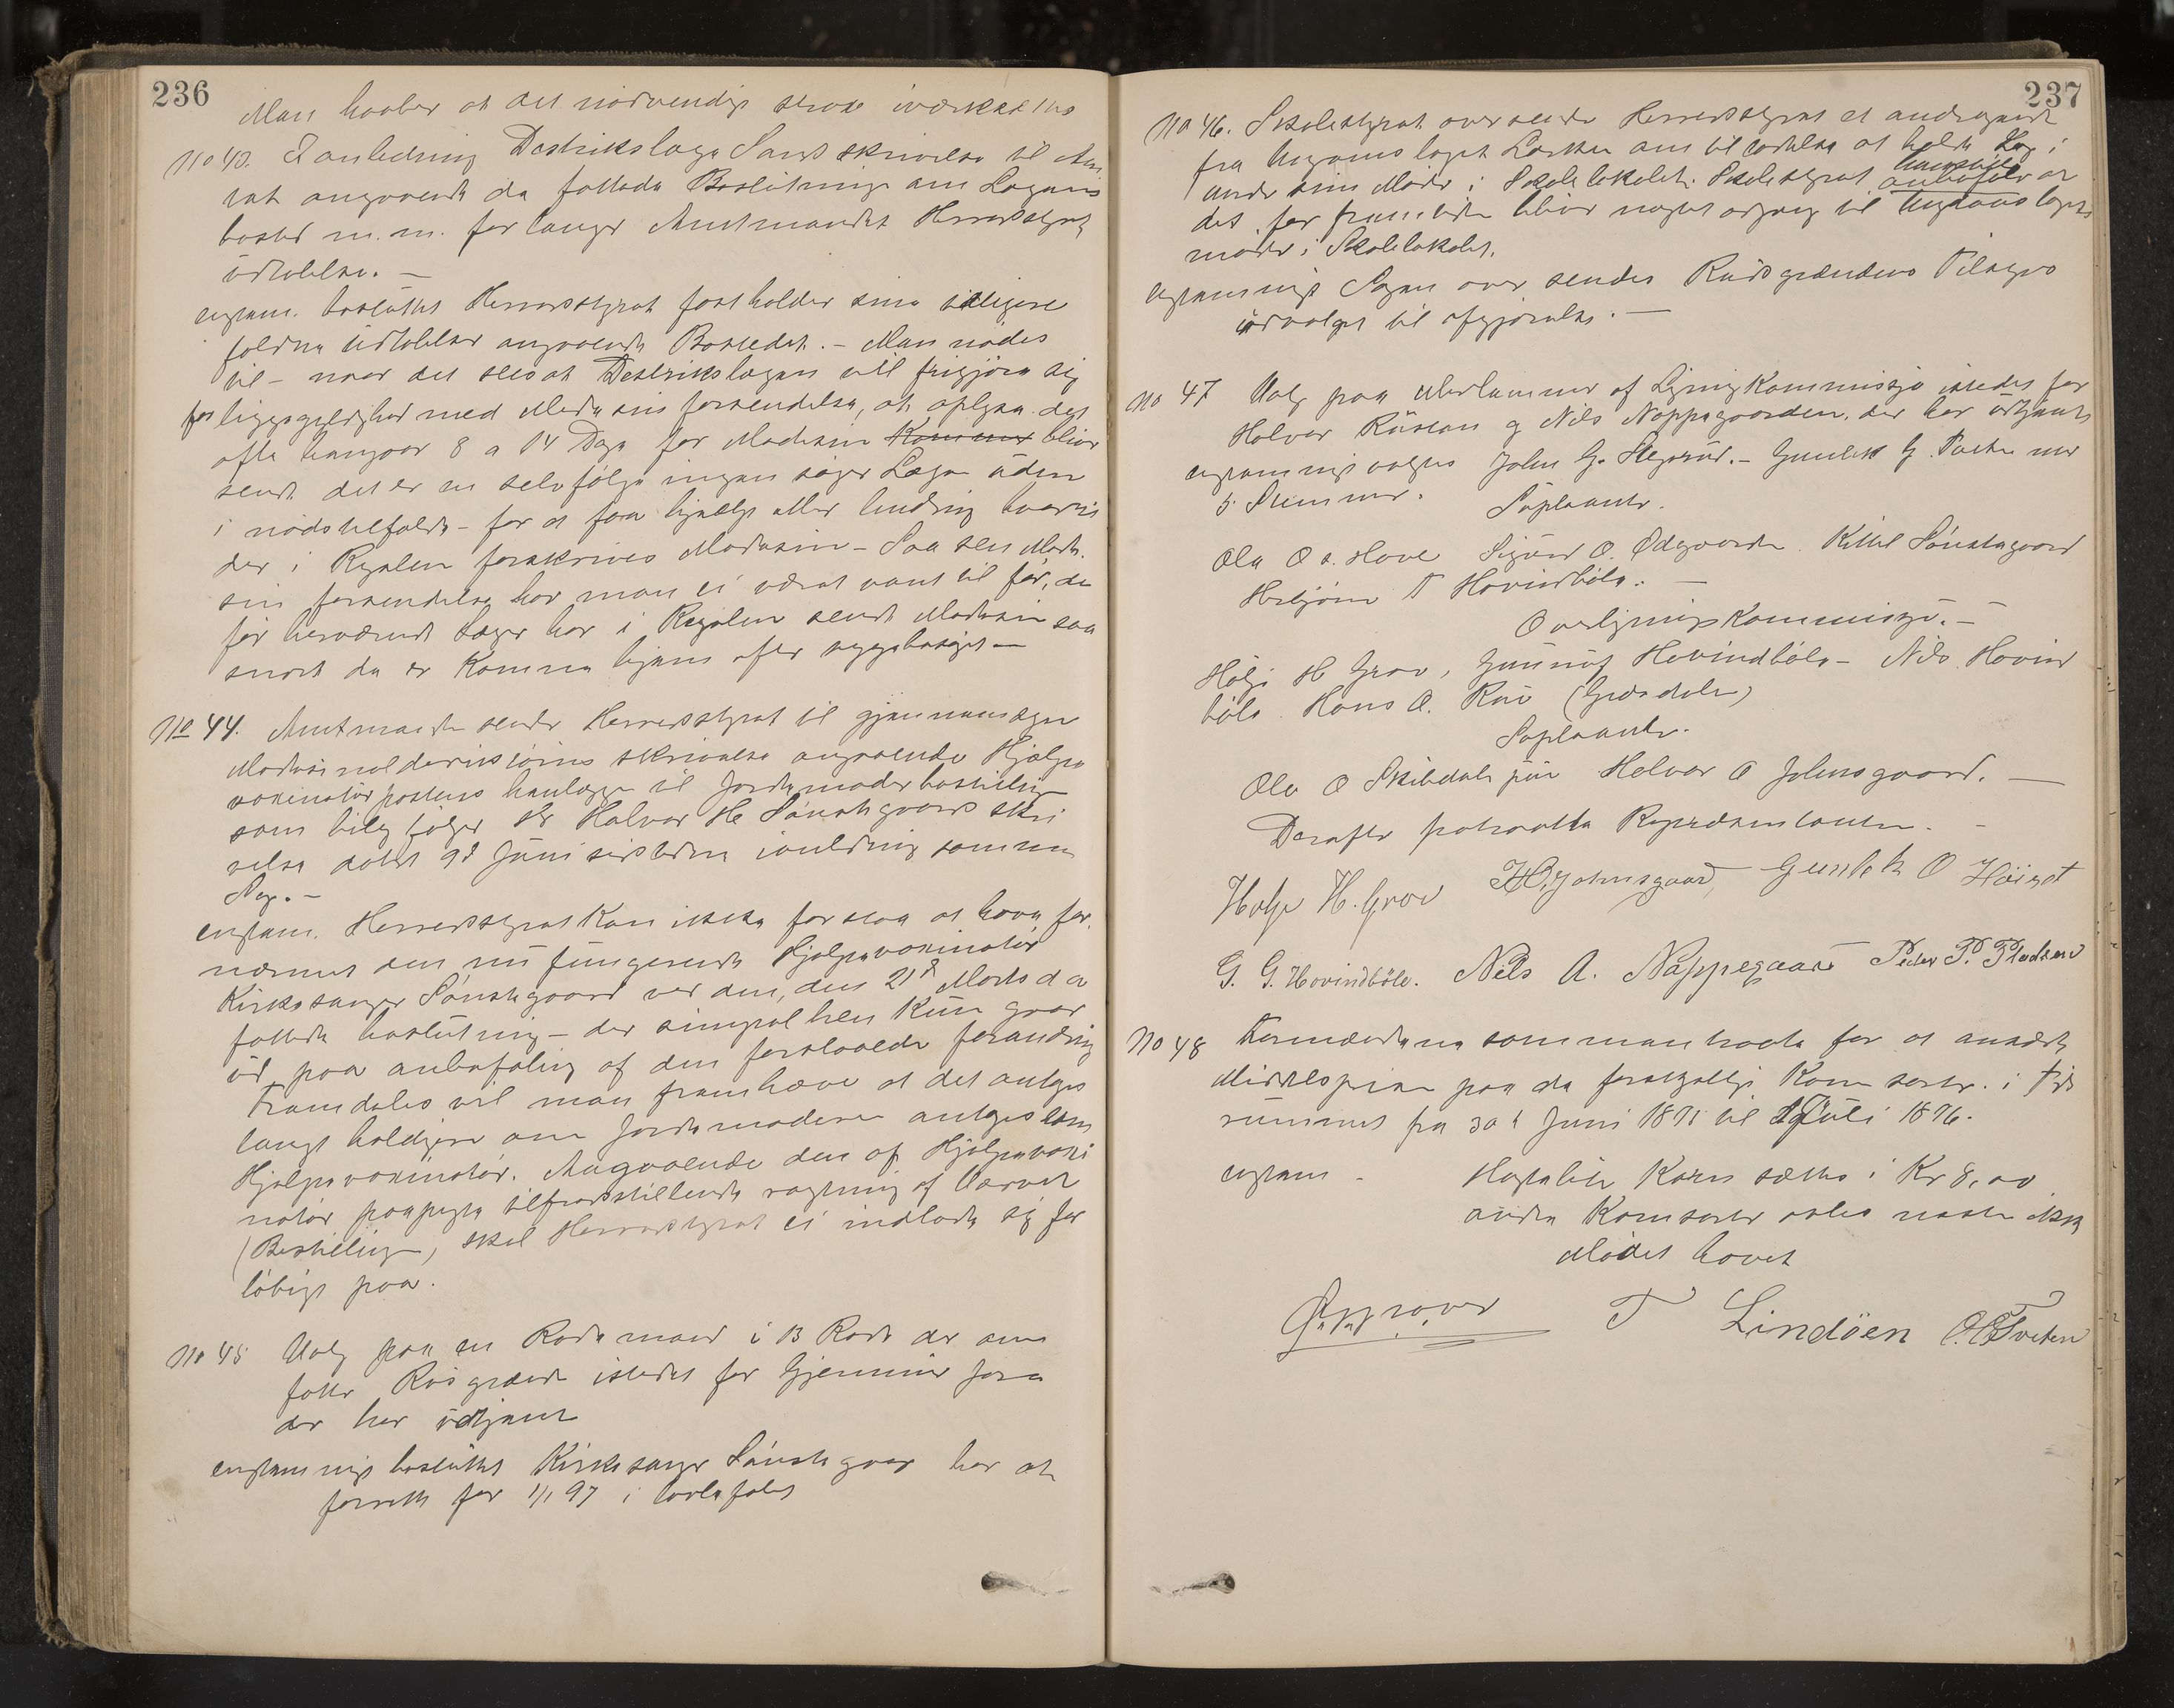 236
Man haaber at det nødvendige strax iværksættes
No 43. I anledning Destrikslæge Sands skrivelse til Am
tet angaaende de fattede Beslutninge om Lægens
bosted m.m. forlanger Amtmandet Herredsstyrets
udtalelse. —
enstem. besluttet Herredsstyret fastholder sine tidligere
foldne udtalelser angaaende Bostedet. — Man nødes
til – naar det sees at Destrikslægen vil frigjøre sig
for ligegyldighed med Medesins forsendelse, at oplyse det
ofte hengaar 8 a 14 Dage før Medesin Kommer bliver
sendt det er en selvfølge ingen søger Læge uden
i nødstilfælde – for at faa hjælp eller lindring hvorfor
der i Regelen forskrives Medesin – Saa sen Mede
sin forsendelse har man ei været vant til før, de
før herværende Læger har i Regelen sendt Medesin saa
snart de er Kommen hjem efter sygebesøget —
No 44. Amtmanden sender Herredsstyret til gjennemsyn
Medesinaldirektørens skrivelse angaaende Hjælpe
vaxinatør postens henlægge til Jordemoderbestilling
som bilag følger Hr Halvor H Sønstegaards skri
velse datert 9d Juni sidstleden i anledning samme
Sag. —
enstem. Herredsstyret Kan ikke forstaa at have for
nærmet den nu fungerende Hjælpevaxinatør
Kirkesanger Sønstegaard ved den, den 21d Marts d a
fattede beslutning – der simpelthen Kun gaar
ud paa anbefaling af den foreslaaede forandring
Fremdeles vil man fremhæve at det antages
langt heldigere om Jordemoderen antages som
Hjælpevaxinatør. Angaaende den af Hjælpevaxi
natør paapegte tilfredsstillende røgtning af Værvet
(Bestilling), skal Herredsstyret ei indlade sig for
løbigt paa.
No 45 Valg paa en Rodemand i 13 Rode der om
fatter Rusgrænd istedet for Gjermund Jore
der har udtjent
enstemmigt besluttet Kirkesanger Sønstegaar har at
forrette for 1/1 97 i valgfaldet
237
No 46. Skolestyret oversender Herredsstyret et andragende
fra Ungdomslaget Læsken om tilladelse at holde Lag i
andre sine Møder i Skolelokalet. Skolestyret anbefaler at
henstille
det for fremtiden bliver nægtet adgang til Ungdomslagets
møder i Skolelokalet.
enstemmigt Sagen over sendes Rusgrændens Tilsyns
udvalget til afgjørelse. —
No 47 Valg paa Medlemmer af LigningKommissjo istedet for
Halvor Rustan og Nils Nappegaarden der har udtjent
enstemmigt valgtes John G. Hegsrud. – Gunlek G. Tveten med
5 Stemmer. Suplanter.
Ola O s. Hove Sigurd O. Ødegaarden. Kittil Sønstegaard
Herbjørn T Hovindbøle. —
OverligningsKommissjo. —
Holje H Grov, Gunnuf Hovindbøle – Nils Hovind
bøle. Hans O. Rue (Gvasdalen)
Suplanter.
Ole O Skibdale jun Halvor O Johnsgaard. —
Derefter fratraatte Repræsentanten. —
Holje H. Grov H O. Johnsgaard, Gunlek O Høigst
G. G. Hovindbøle. Nils A. Nappegaard Peder P. Pladsene
No 48 Formændene sammentraadte for at ansætte
Middelsprisen paa de forskjellige Kornsorter. i tids
rummet fra 30d Juni 1895 til 1 Juli 1896.
enstem – Hestelite Korn sættes i Kr 8,00
andre Kornsorter avles næsten ikke
Mødet hævet
T Lindöen O. T Tveten